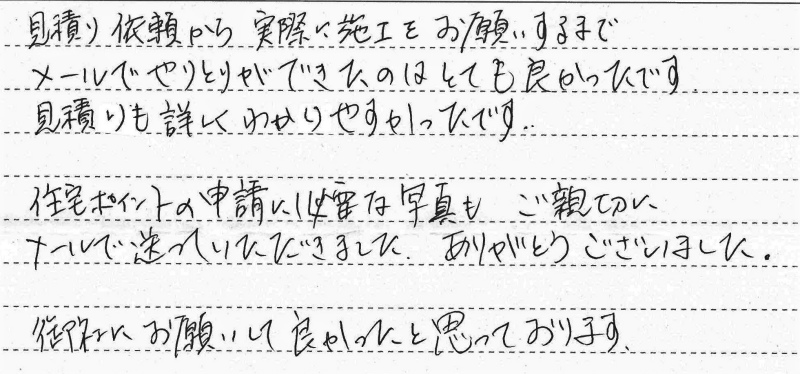 見積り依頼から実際に施工をお願いするまで
メールでやりとりができたのはとても良かったです
見積りも詳しくわかりやすかったです.
住宅ポイントの申請に必要な写真も ご親切に
メールで送っていただきました. ありがとうございました。
御社にお願いして良かったと思っております.